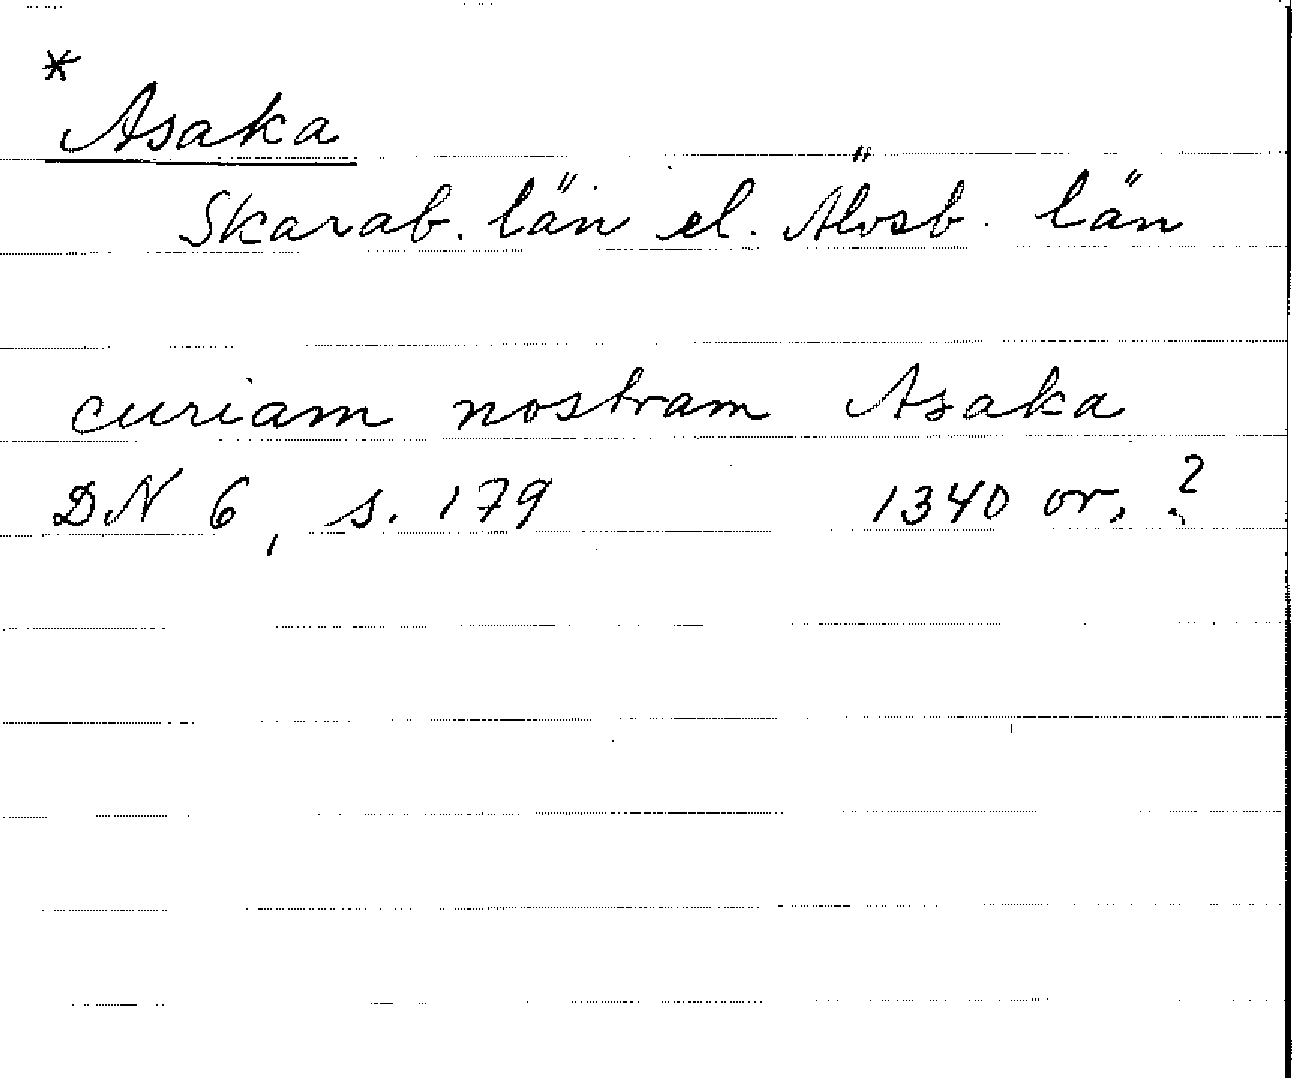 *
Asaka
Skarab. län el. Älvsb. län
curiam nostram Asaka
DN 6, s. 179 1340 or. ?